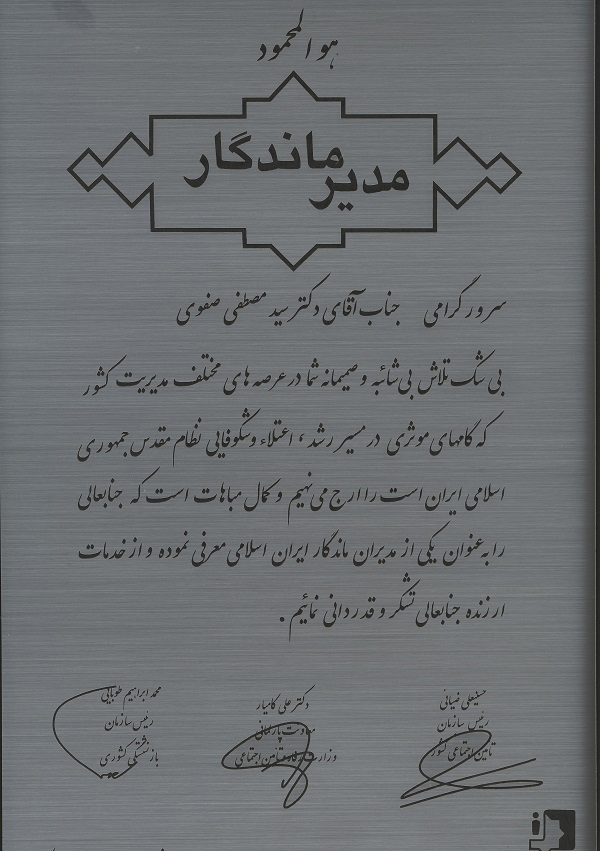 هو المحمود
مدیر ماندگار
سرور گرامی جناب آقای دکتر سید مصطفی صفوی
بی شک تلاش بی شائبه و صمیمانه شما در عرصه های مختلف مدیریت کشور
که گامهای موثری در مسیر رشد ، اعتلاء و شکوفایی نظام مقدس جمهوری
اسلامی ایران است را ارج می نهیم و کمال مباهات است که جنابعالی
را به عنوان یکی از مدیران ماندگار ایران اسلامی معرفی نموده و از خدمات
ارزنده جنابعالی تشکر و قدردانی نمائیم .
حسینعلی ضیائی
رئیس سازمان
تامین اجتماعی کشور
دکتر علی کائیار
معاونت پارلمانی
وزارت رفاه و تامین اجتماعی
محمد ابراهیم طوبایی
رئیس سازمان
بازنشستگی کشوری